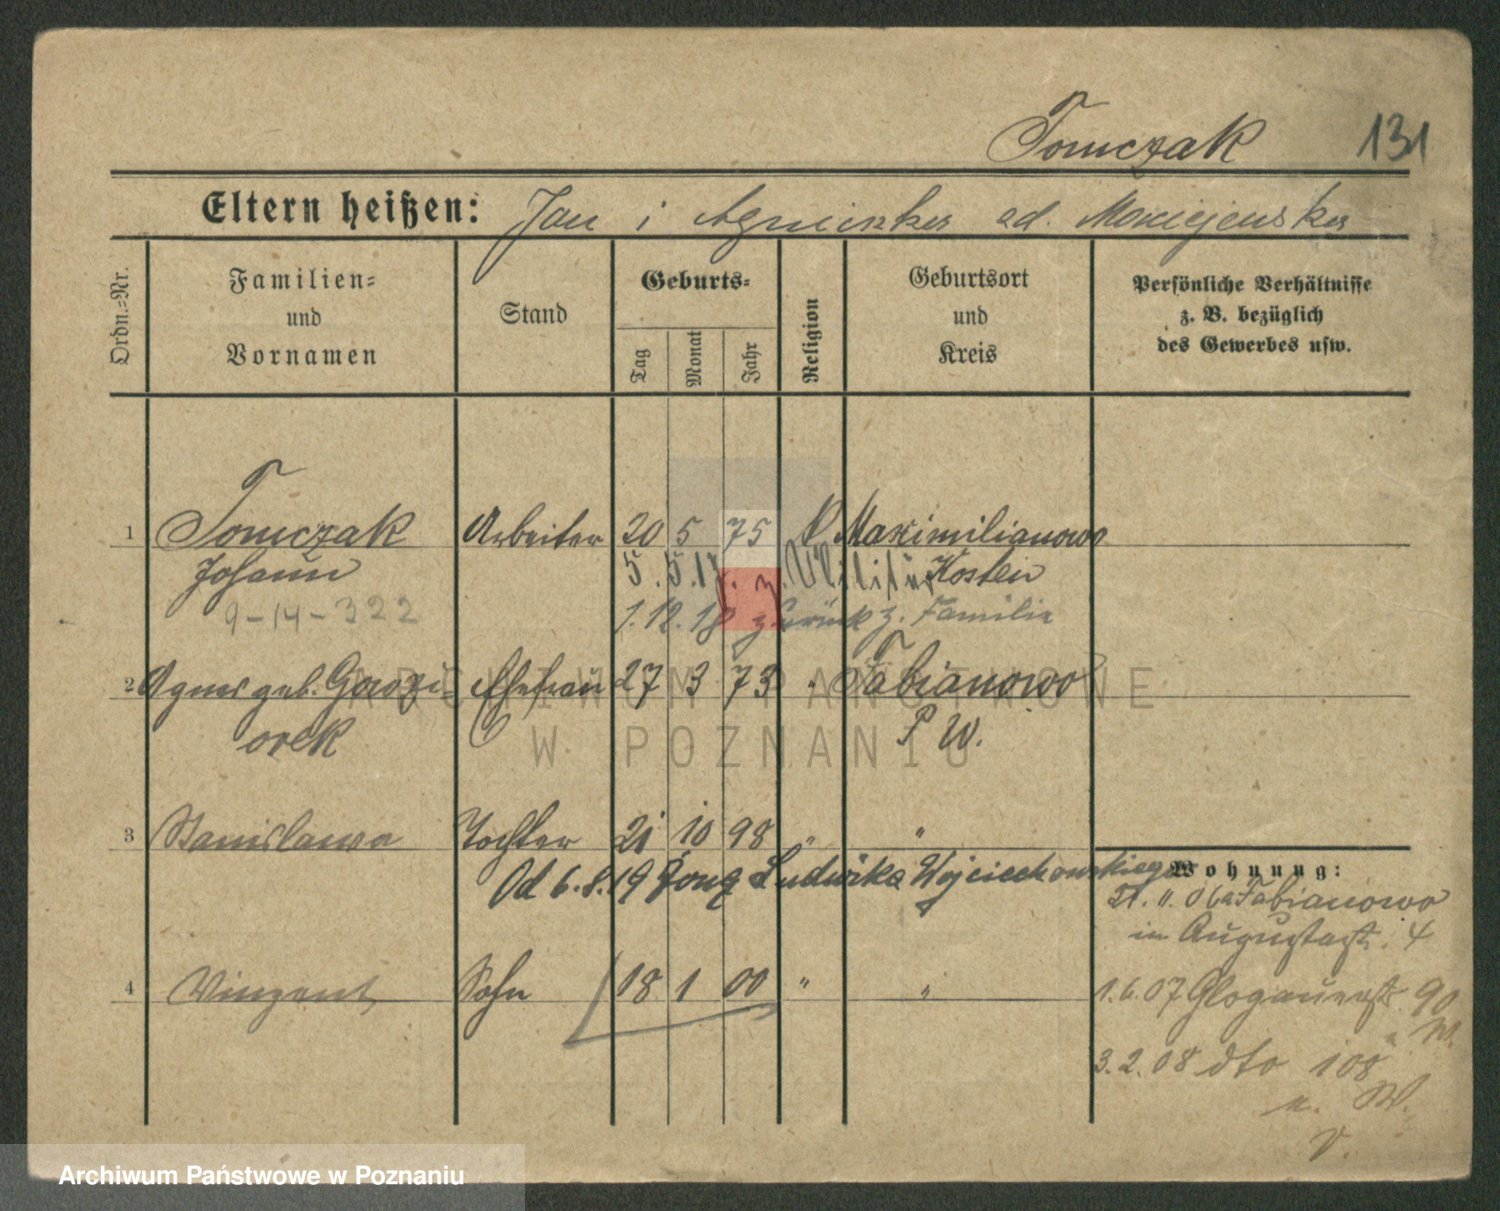 Tomczak 131
Eltern heißen: Jan i Agnieszka od. Maciejewska
Ordn.=Nr.
Familien=
und
Vornamen
Stand
Geburts=
Tag
Monat
Jahr
Religion
Geburtsort
und
Kreis
Persönliche Verhältnisse
z. B. bezüglich
des Gewerbes usw.
1 Tomczak Arbeiter 20 5 75 Maximilianowo
Johann 5.5.17. z. Militär Kosten
9-14-322 1.12.18 zurück z. Familie
2 Agnes geb. Ehefrau 27 3 73 Fabianowo
orek P W.
3 Stanislawa Tochter 21 10 98 " "
Od 6.8.19 żong Ludwika Wojciechowskiego
Wohnung:
Fabianowo
in Augustastr. 4
4 Vinzent Sohn 18 1 00 " "
1.6.07 Glogauerstr 90
W.
3.2.08 dto 108
W.
V.
ARCHIWUM PAŃSTWOWE
W POZNANIU
Archiwum Państwowe w Poznaniu